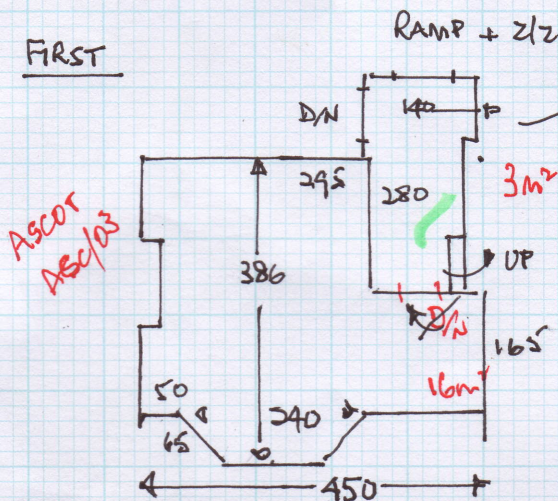 FIRST
RAMP + 2/2
D/N
140
295
280
3m²
ASCOT
ASC/03
386
UP
D/N
165
16m²
50
240
65
450